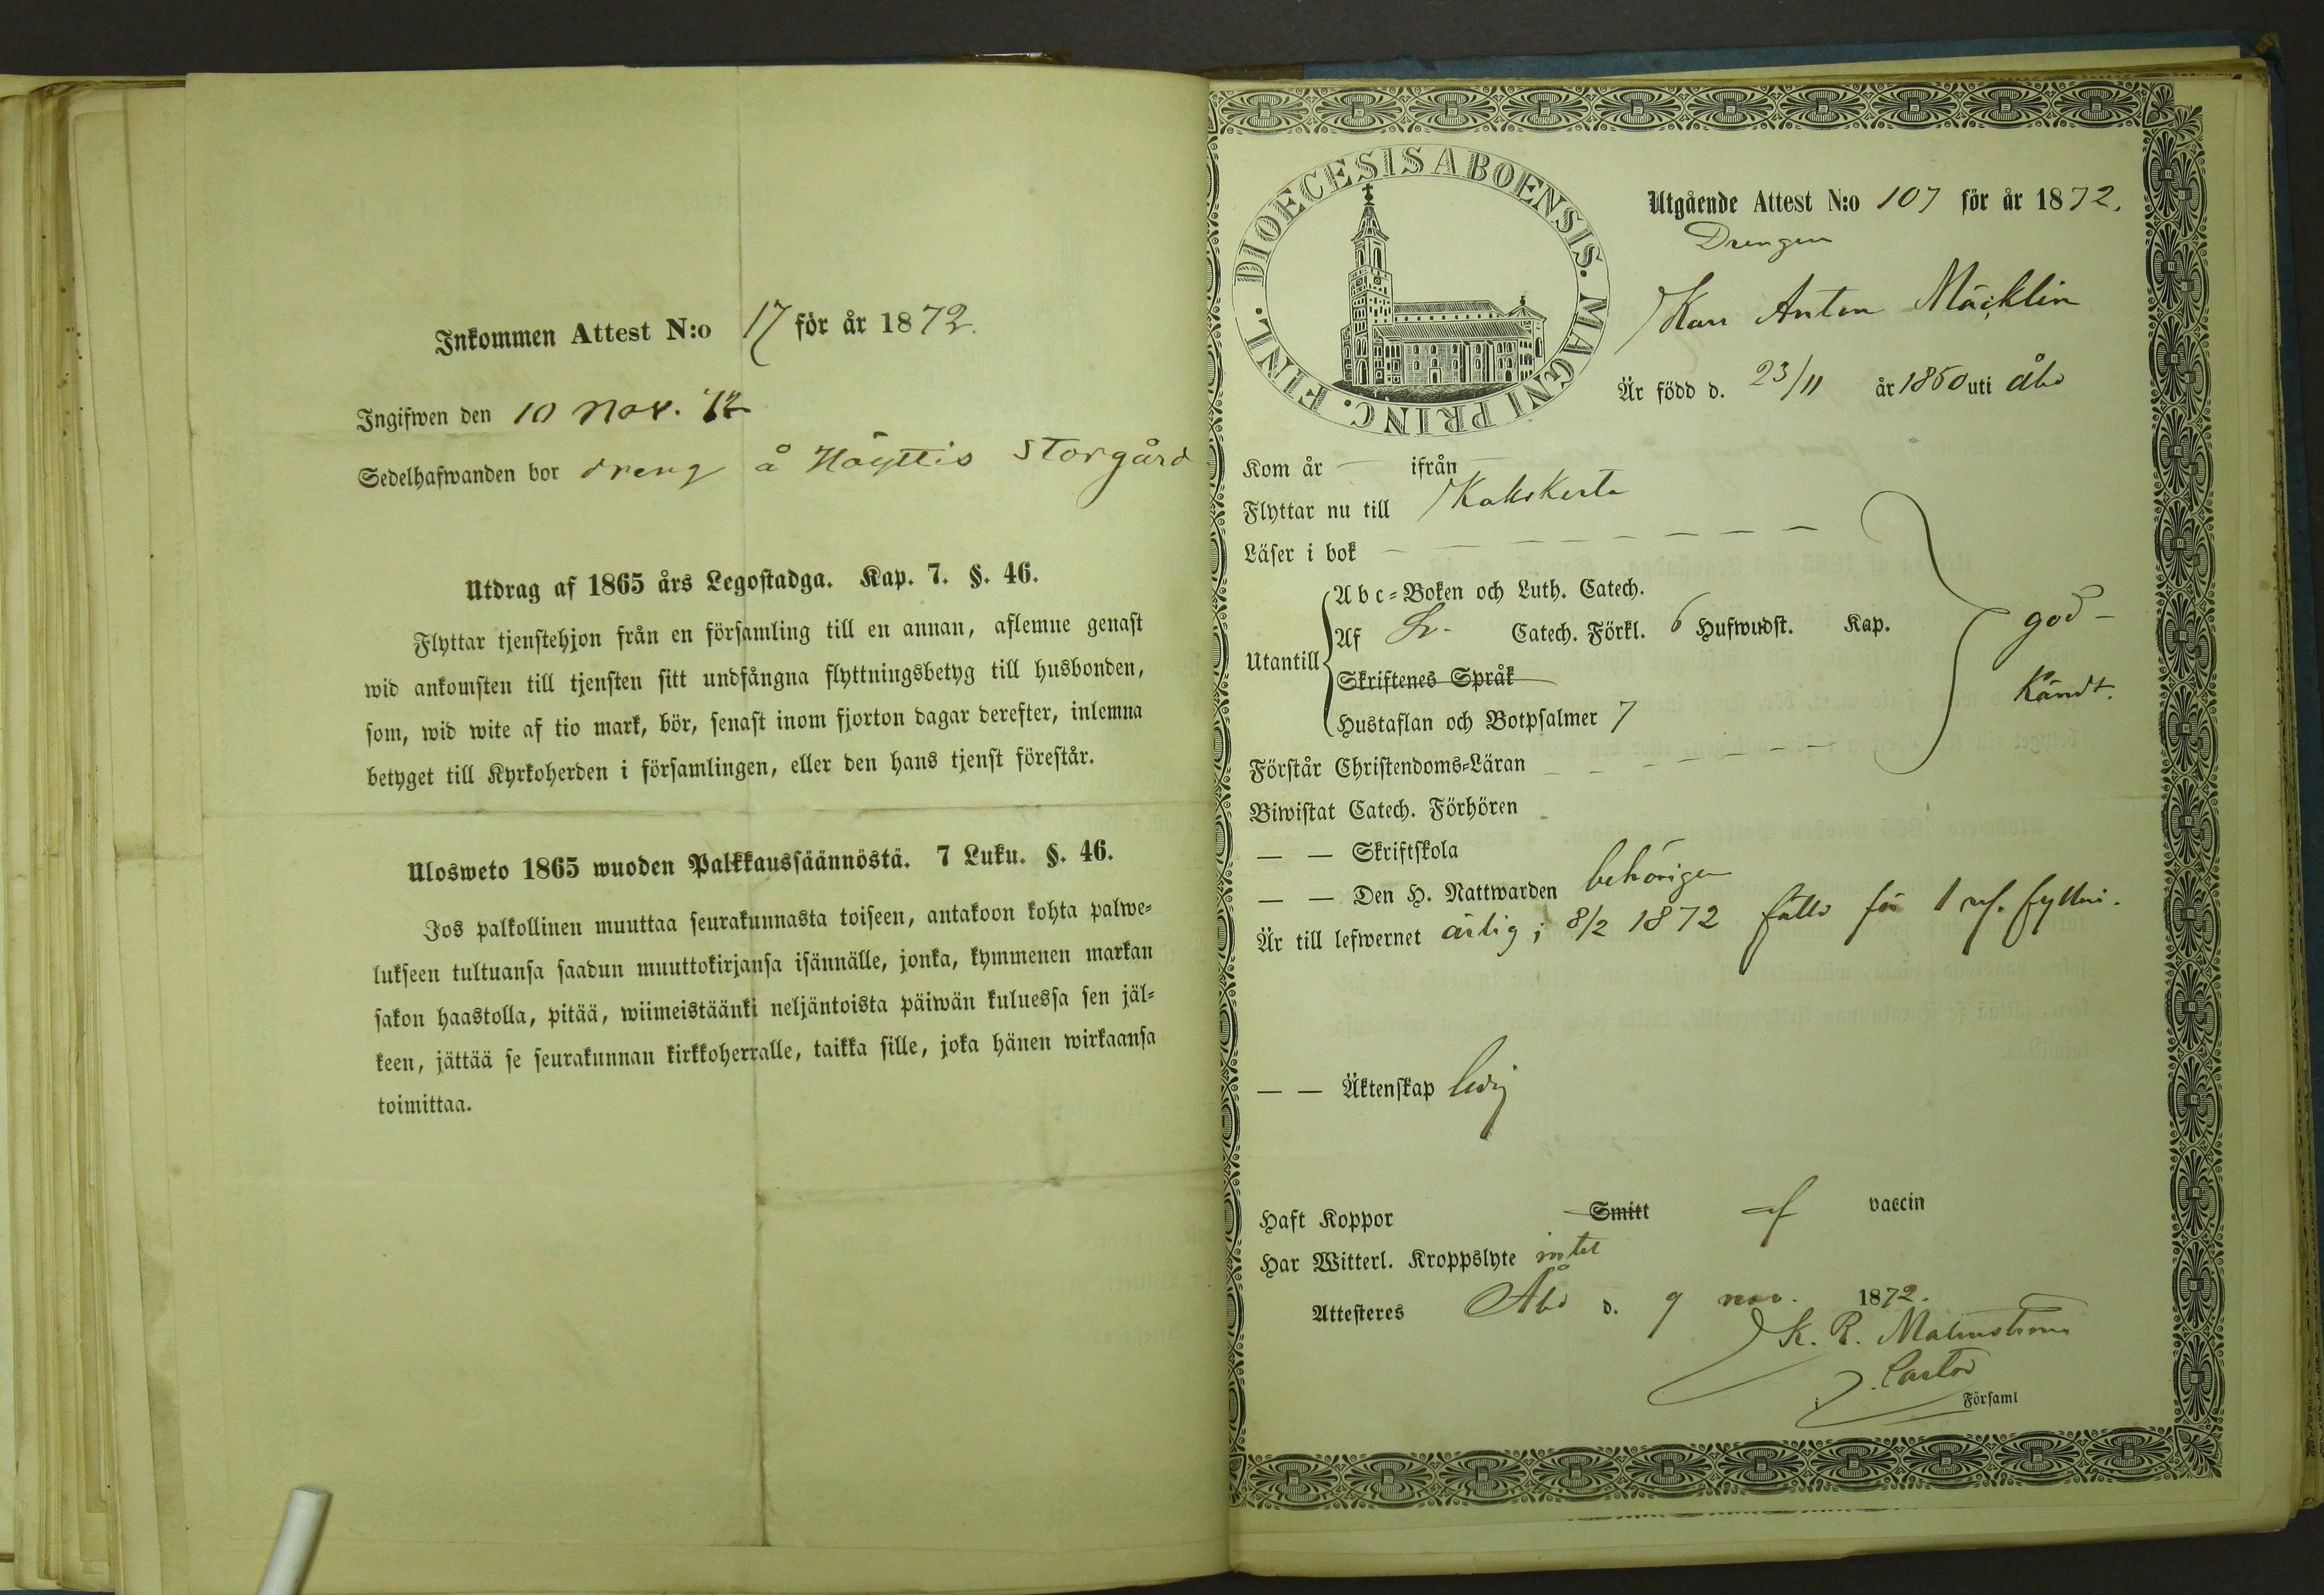 Inkommen Attest N:o 17 för år 1872.
Ingifwen den 10 Nov. 72
Sedelhafwanden bor dreng å Höyttis Storgård
Utdrag af 1865 års Legostadga. Kap. 7. §. 46.
Flyttar tjenstehjon från en församling till en annan, aflemne genast
wid ankomsten till tjensten sitt undfångna flyttningsbetyg till husbonden,
som, wid wite af tio mark, bör, senast inom fjorton dagar derefter, inlemna
betyget till Kyrkoherden i församlingen, eller den hans tjenst förestår.
Ulosweto 1865 wuoden Palkkaussäännöstä. 7 Luku. §. 46.
Jos palkollinen muuttaa seurakunnasta toiseen, antakoon kohta palwe-
lukseen tultuansa saadun muuttokirjansa isännälle, jonka, kymmenen markan
sakon haastolla, pitää, wiimeistäänki neljäntoista päiwän kuluessa sen jäl-
keen, jättää se seurakunnan kirkkoherralle, taikka sille, joka hänen wirkaansa
toimittaa.
DIOECESIS ABOENSIS. MAGNI PRINC. FINL.
Utgående Attest N:o 107 för år 1872.
Drengen
Karl Anton Mäcklin
Är född d. 23/11 år 1850 uti Åbo
Kom år — ifrån —
Flyttar nu till Kakskerta
Läser i bok — — — — — — —
Abc-Boken och Luth. Catech.
Utantill Af Sv. Catech. Förkl. 6 Hufwudst. Kap. god-
Skriftenes Språk
känd t.
Hustaflan och Botpsalmer 7
Förstår Christendoms-Läran — — — — — —
Biwistat Catech. Förhören
— — Skriftskola
— — Den H. Nattwarden behörigen
Är till lefwernet ärlig; 8/2 1872 fälld för 1 rf. fylleri.
— — Äktenskap ledig
Haft Koppor Smitt af vaccin
Har Witterl. Kroppslyte intet
Attesteres Åbo d. 9 nov. 1872.
K. R. Malmström
Pastor
i Församl